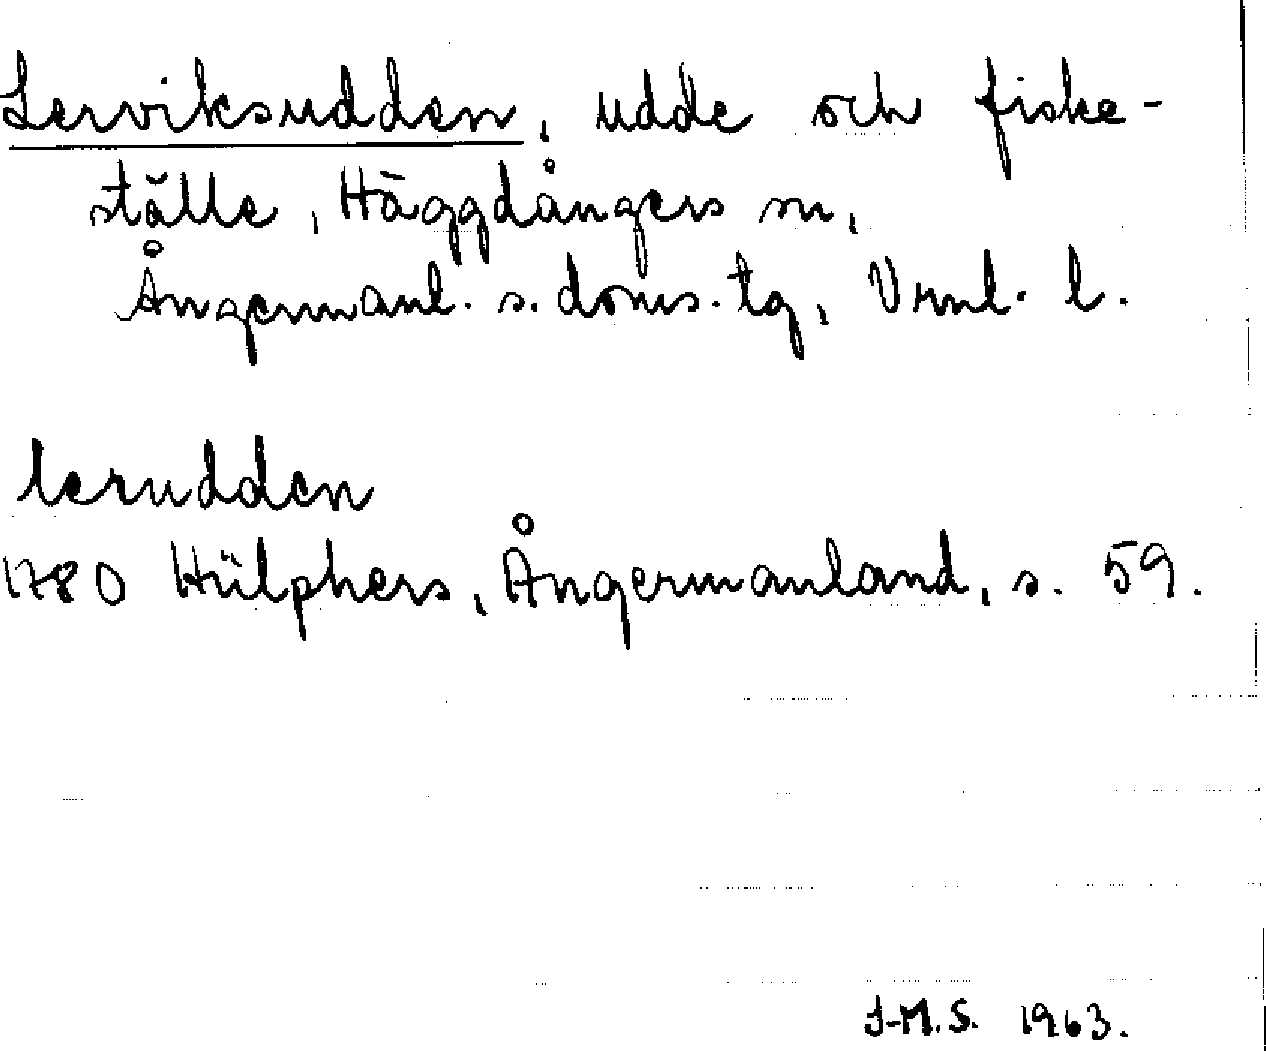 Lerviksudden, udde och fiske-
ställe, Häggdångers sn,
Ångermanl. s. doms. tg, Vrnl. l.
lerudden
1780 Hülphers, Ångermanland, s. 59.
I-M.S. 1963.